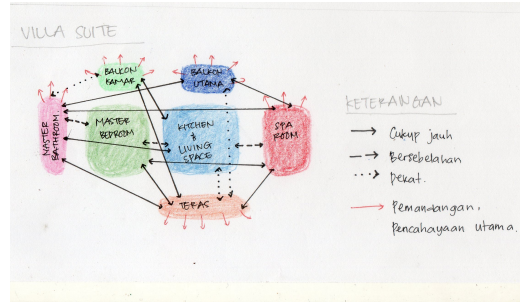 VILLA SUITE
BALKON
KAMAR
BALKON
UTAMA
MASTER
BATHROOM
MASTER
BEDROOM
KITCHEN
&
LIVING
SPACE
SPA
ROOM
TERAS
KETERANGAN
Cukup jauh
Bersebelahan
Dekat.
Pemandangan,
Pencahayaan utama.